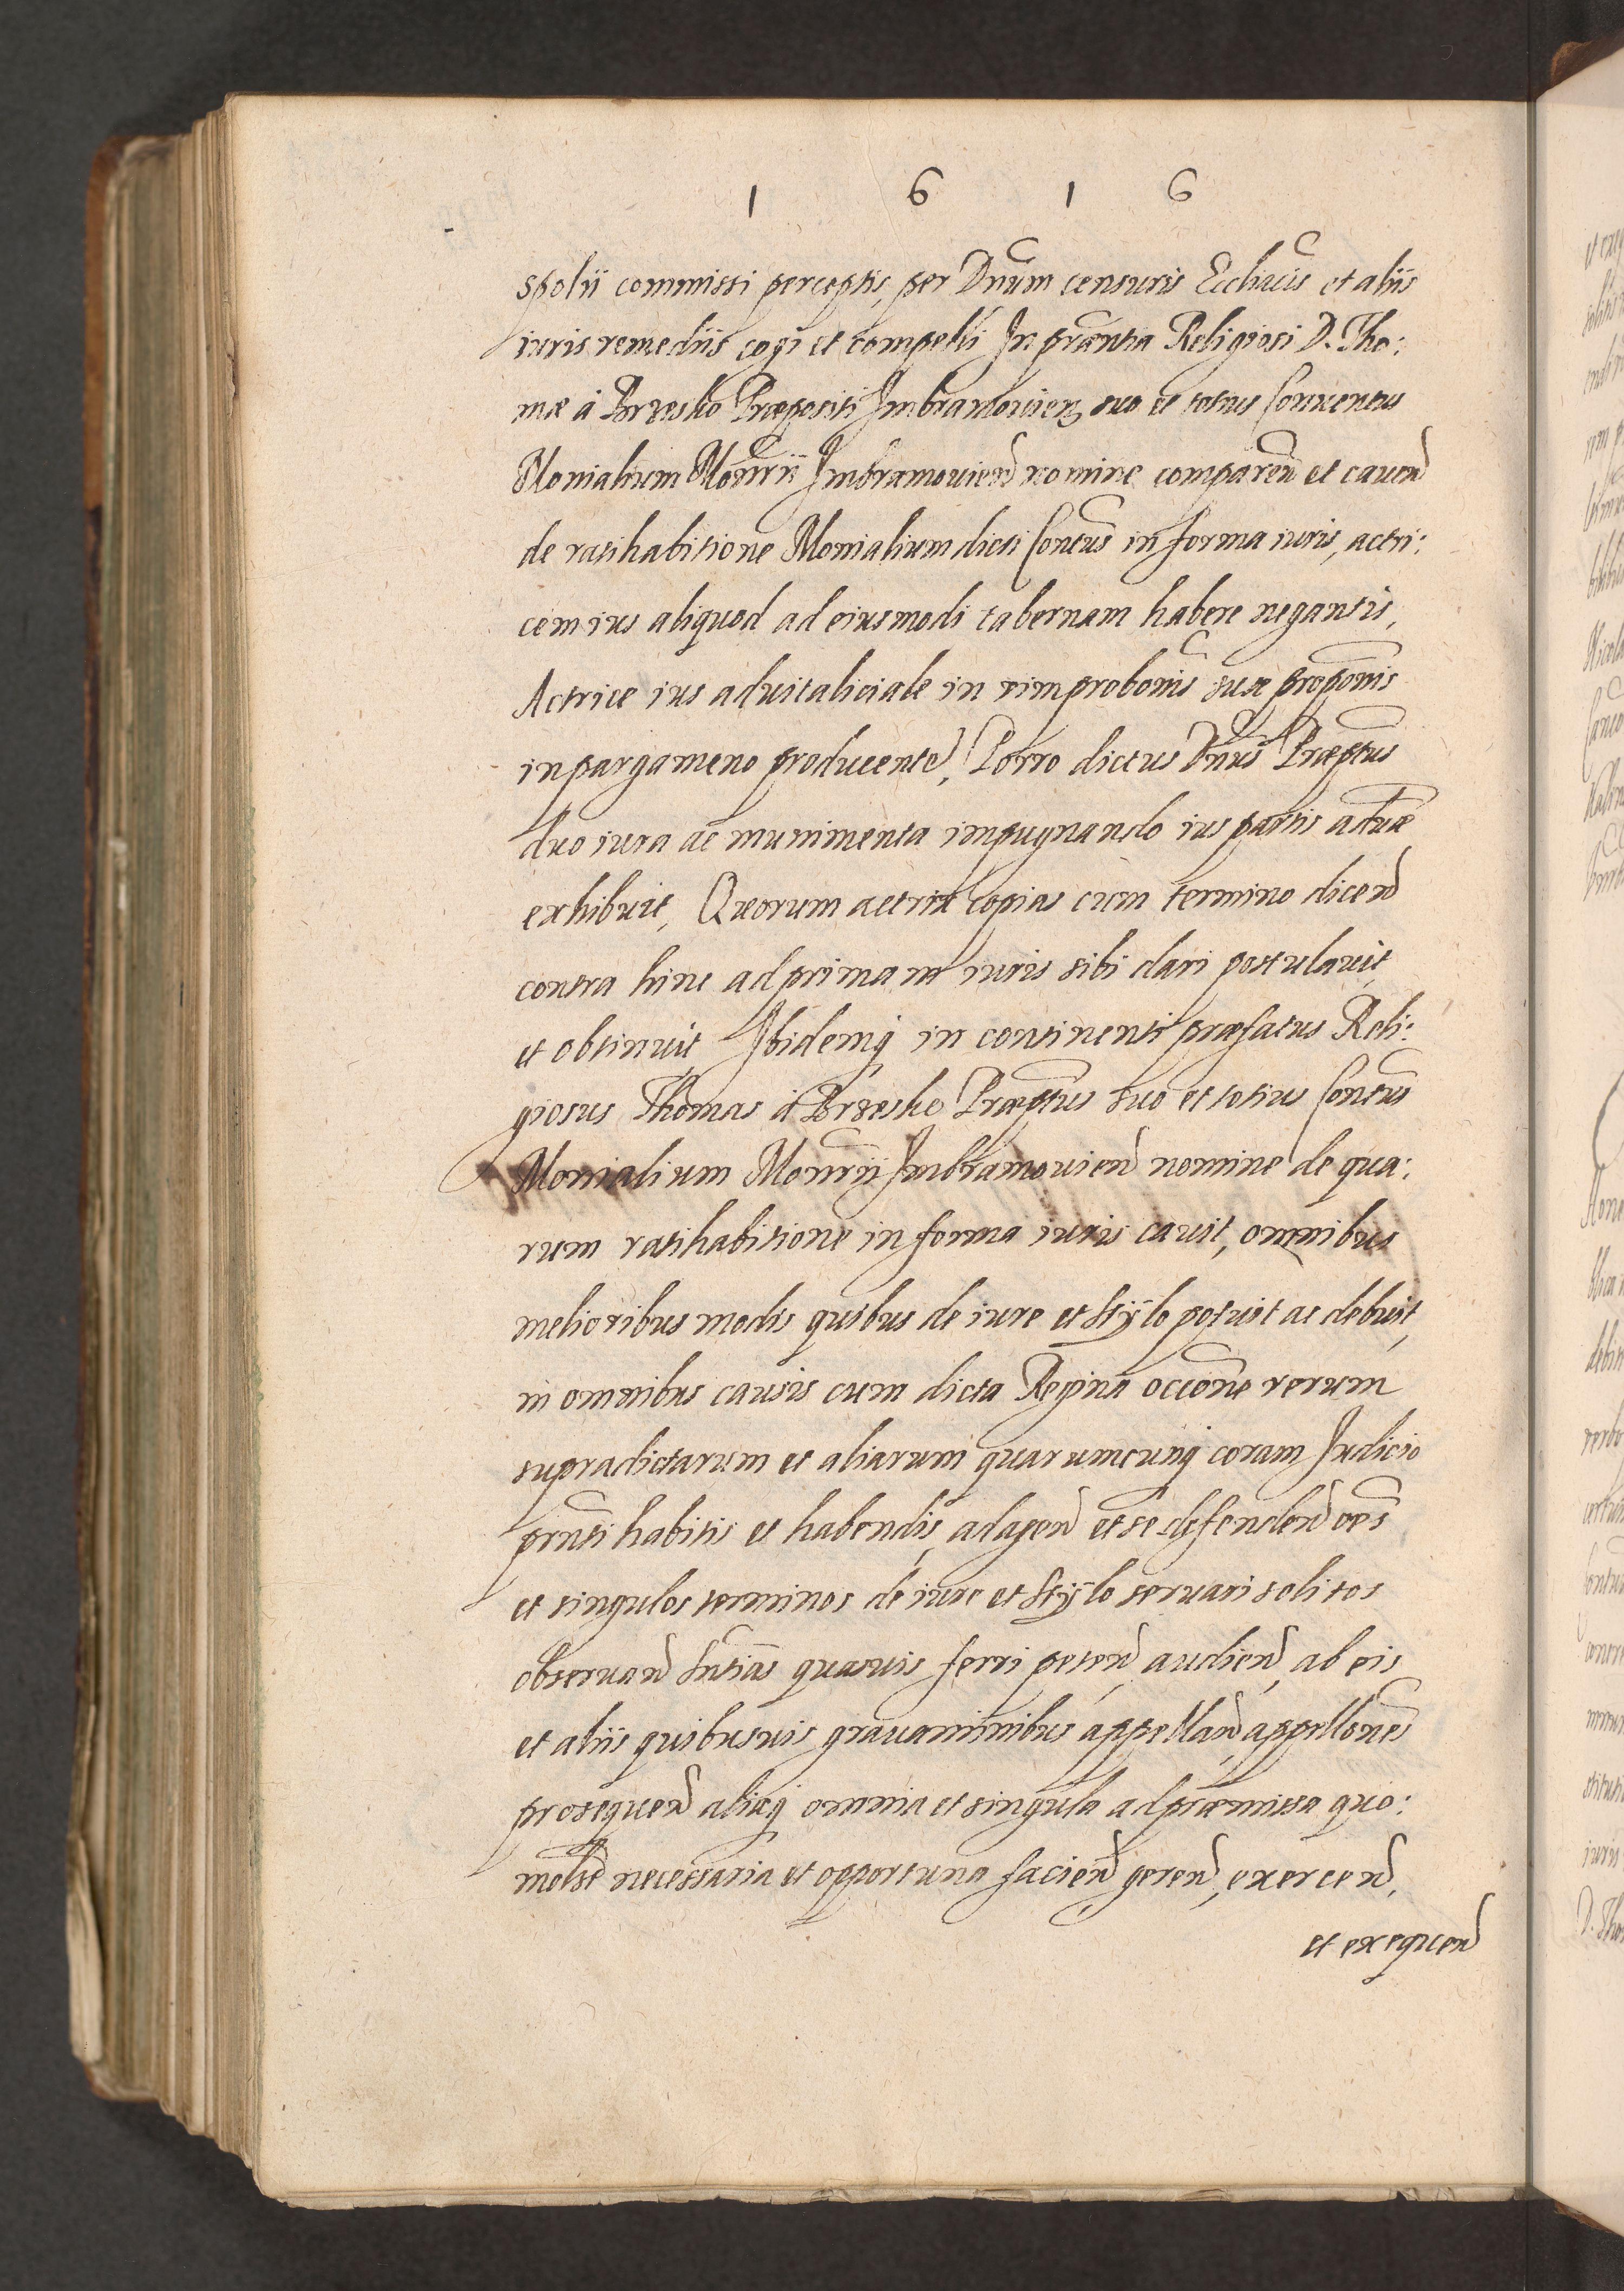 1 6 1 6
spolii commissi perceptis, per Dnum censuris Ecclīacis et aliis
iuris remediis cogi et compelli In pręntia Religiosi D. Tho:
mæ à Brzesko Præpositi Imbramouien suo et totius Conuentus
Monialium Monrii Imbramouien nomine comparen et cauen
de ratihabitione Monialium dicti Contus in forma iuris, actri:
cem ius aliquod ad eiusmodi tabernam habere negantis,
Actrice ius aduitaliciale in vim probonis suæ proponis
in pargameno producente, Porro dictus Dnus Præptus
duo iura ac munimenta impugnando ius partis aduæ
exhibuit, Quorum actrix copias cum termino dicen
contra hinc ad primam iuris sibi dari postulauit
et obtinuit Ibidemq in continenti præfatus Reli:
giosus Thomas à Brzesko Præptus suo et totius Contus
Monialium Monrii Imbramouien nomine de qua:
rum ratihabitione in forma iuris cauit, omnibus
melioribus modis quibus de iure et stylo potuit ac debuit,
in omnibus causis cum dicta Regina occone rerum
supradictarum et aliarum quarumcunq coram Iudicio
prnti habitis et habendis, ad agen et se defenden oes
et singulos terminos de iure et stylo seruari solitos
obseruan sntias quasuis ferri peten, audien, ab eis
et aliis quibusuis grauaminibus appellan appellones
prosequen aliaq omnia et singula ad præmissa quo:
molbt necessaria et opportuna facien geren, exercen,
et exequen